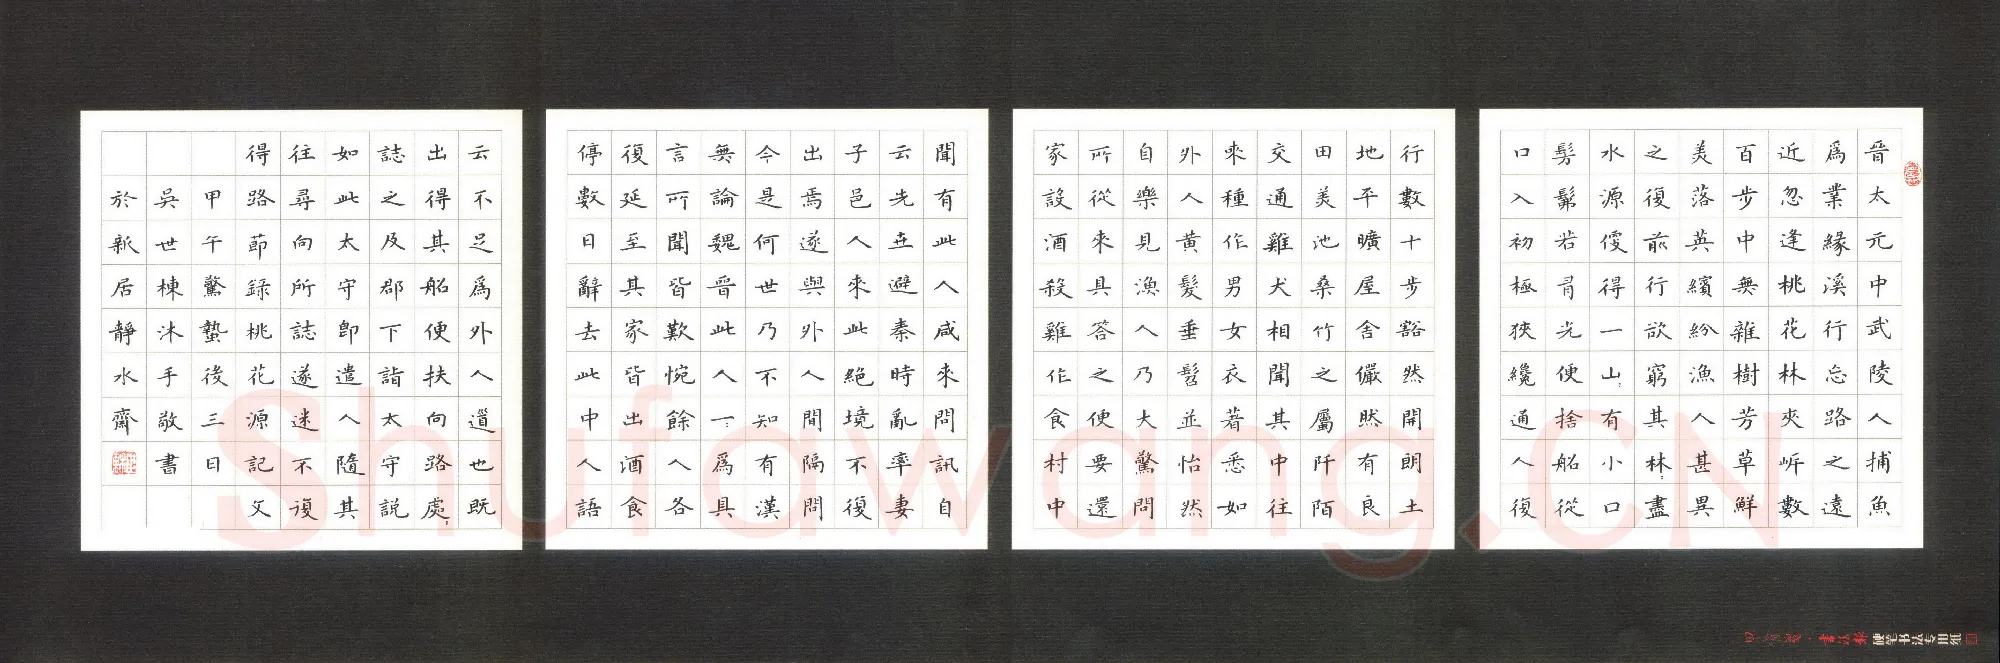 晉太元中武陵人捕魚
爲業緣溪行忘路之遠
近忽逢桃花林夾岍數
百步中無雜樹芳草鮮
美落英繽紛漁人甚異
之復前行欲窮其林〻盡
水源便得一山〻有小口
髣髴若有光便捨船從
口入初極狹纔通人復
行數十步豁然開朗土
地平曠屋舍儼然有良
田美池桑竹之屬阡陌
交通雞犬相聞其中往
來種作男女衣著悉如
外人黃髮垂髫並怡然
自樂見漁人乃大驚問
所從來具答之便要還
家設酒殺雞作食村中
聞有此人咸來問訊自
云先世避秦時亂率妻
子邑人來此絕境不復
出焉遂與外人間隔問
今是何世乃不知有漢
無論魏晉此人一〻爲具
言所聞皆歎惋餘人各
復延至其家皆出酒食
停數日辭去此中人語
云不足爲外人道也既
出得其船便扶向路處〻
誌之及郡下詣太守説
如此太守即遣人隨其
往尋向所誌遂迷不復
得路節錄桃花源記文
甲午驚蟄後三日
吳世棟沐手敬書
於新居靜水齋
書法報 硬笔书法专用纸
Shufawang.CN